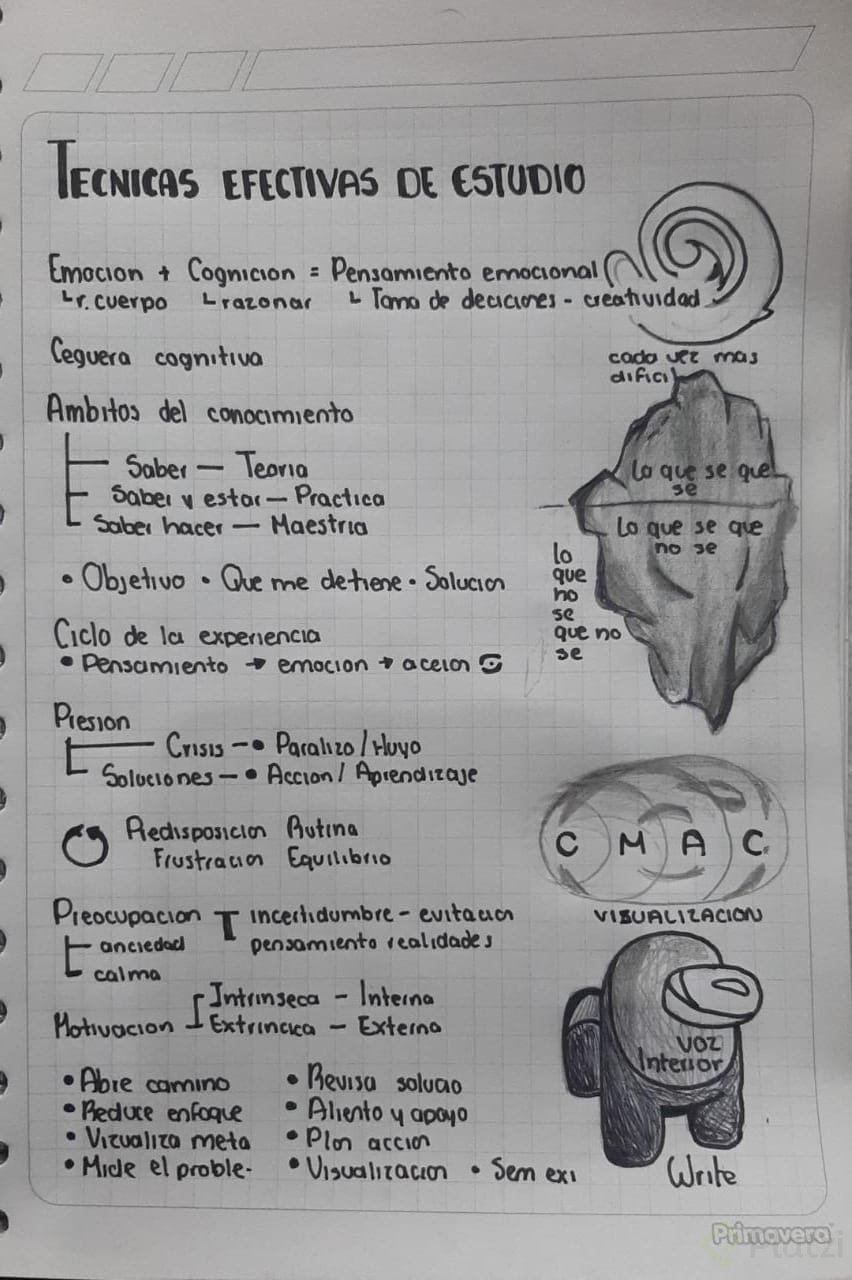 TECNICAS EFECTIVAS DE ESTUDIO
Emocion + Cognicion = Pensamiento emocional
r. cuerpo razonar Toma de deciciones - creatividad
cada vez mas
dificil
Ceguera cognitiva
Ambitos del conocimiento
Saber — Teoria
Saber y estar — Practica
Saber hacer — Maestria
Lo que se que
se
Lo que se que
no se
lo
que
no
se
que no
se
• Objetivo • Que me detiene • Solucion
Ciclo de la experiencia
• Pensamiento → emocion → accion
Presion
Crisis —• Paralizo / Huyo
Soluciones —• Accion / Aprendizaje
Redisposicion Rutina
Frustracion Equilibrio
C M A C
VISUALIZACION
Preocupacion incertidumbre - evitacion
anciedad pensamiento realidades
calma
Intrinseca - Interna
Motivacion Extrincica - Externa
voz
Interior
Write
• Abre camino • Revisa solucio
• Reduce enfoque • Aliento y apoyo
• Vizualiza meta • Plan accion
• Mide el proble- • Visualizacion • Sem exi
Primavera
Platzi